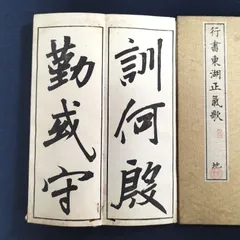 訓何殷
勤或守
行書東湖正氣歌
地